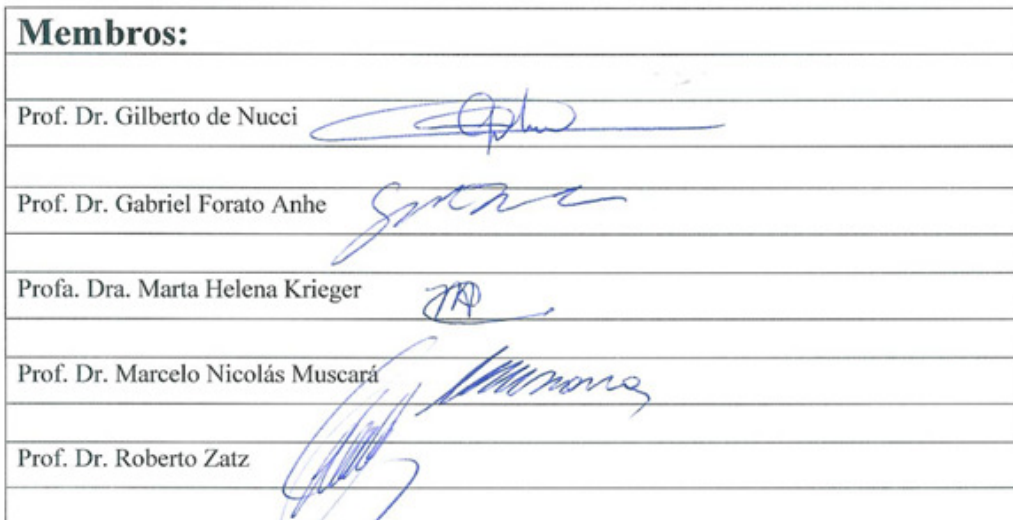 Membros:
Prof. Dr. Gilberto de Nucci
Prof. Dr. Gabriel Forato Anhe
Profa. Dra. Marta Helena Krieger
Prof. Dr. Marcelo Nicolás Muscará
Prof. Dr. Roberto Zatz